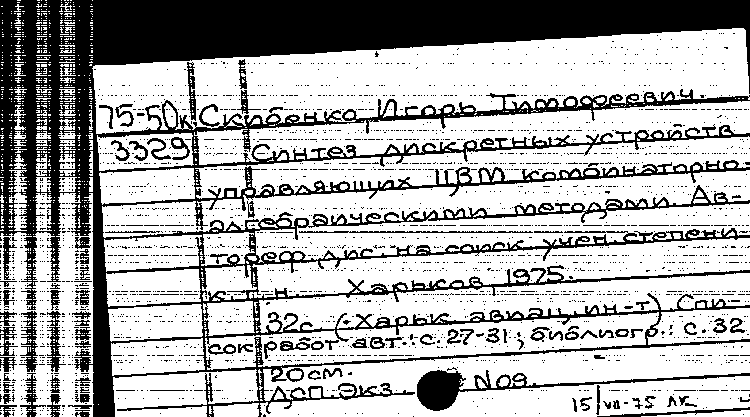 75-50к Скибенко, Игорь Тимофеевич.
3329 Синтез дискретных устройств
управляющих ЦВМ комбинаторно-
алгебраическими методами. Ав-
тореф. дис. на соиск. учен. степени
к.т.н. Харьков, 1975.
32с. (Харьк. авиац. ин-т) Спи-
сок работ авт.: с.27-31; библиогр.: с.32
20см.
ДСП. Экз. № 09.
15/VII-75 ЛК